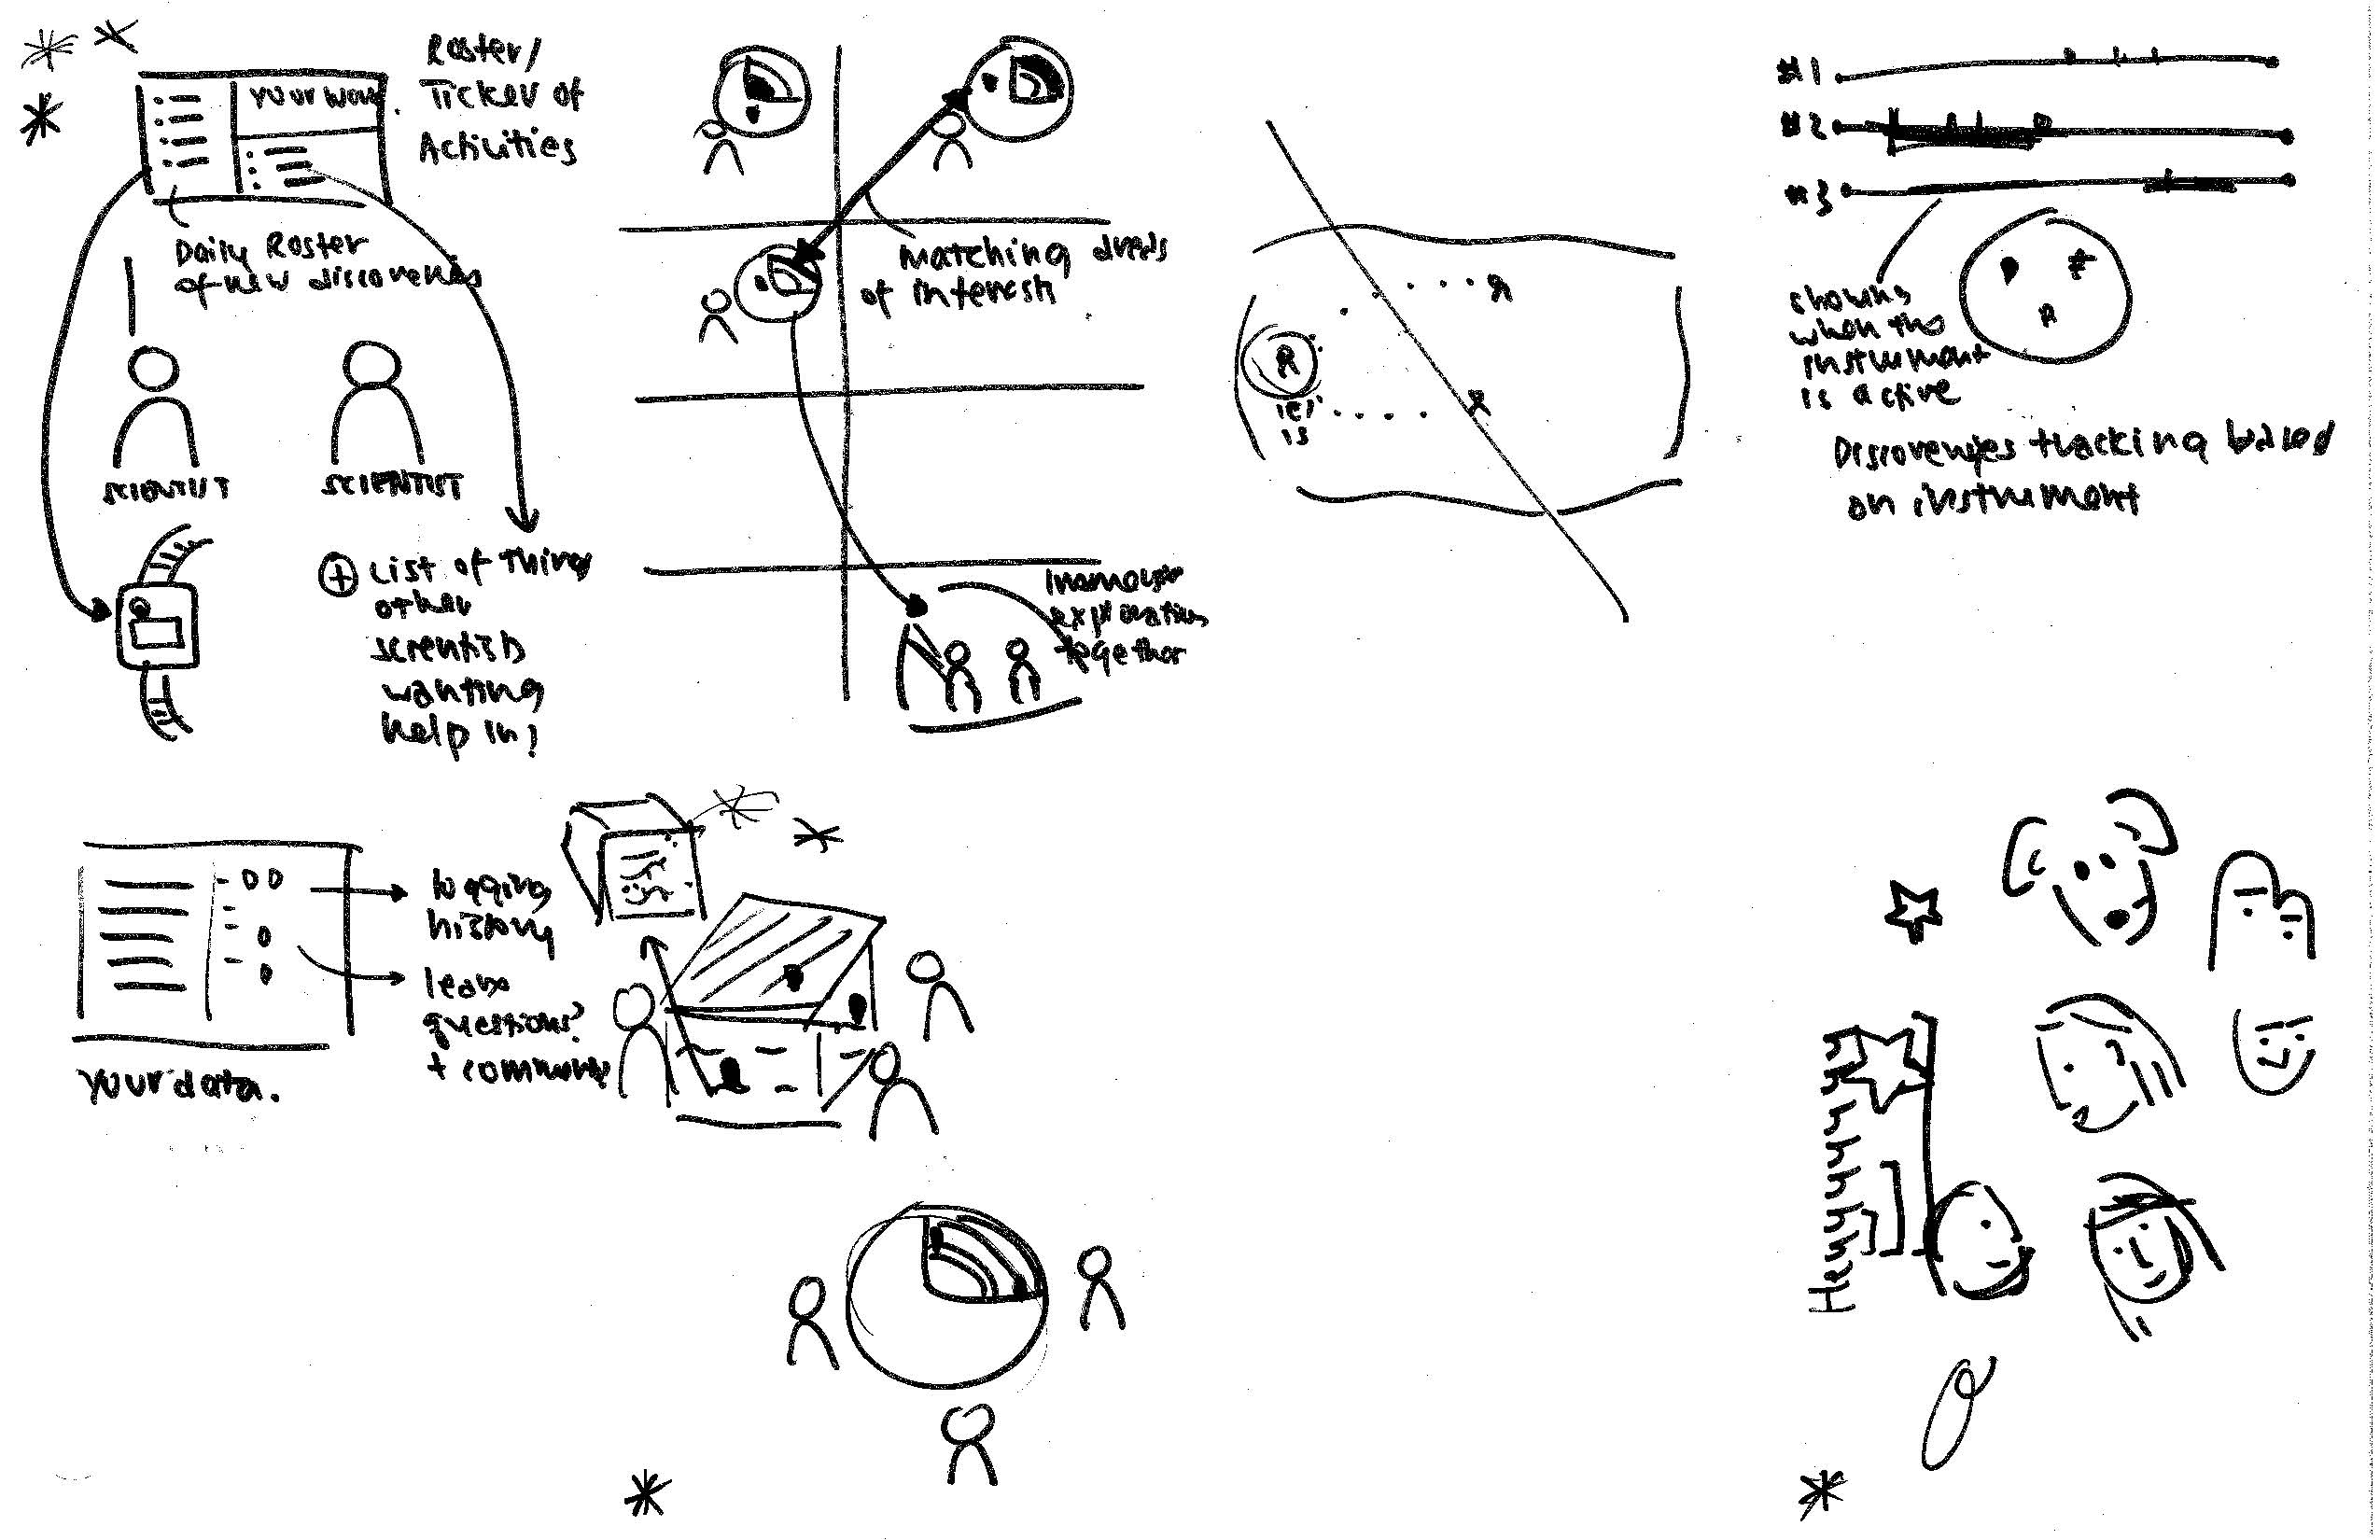 Roster/
Ticker of
Activities
Your work.
Daily Roster
of new discoveries
SCIENTIST
SCIENTIST
+ List of things
other
scientists
wanting
help in!
Matching areas
of interests
exploration
together
#1
#2
#3
shows
when the
instrument
is active
Discoveries tracking based
on instrument
logging
history
leave
questions?
+ comments
Your data.